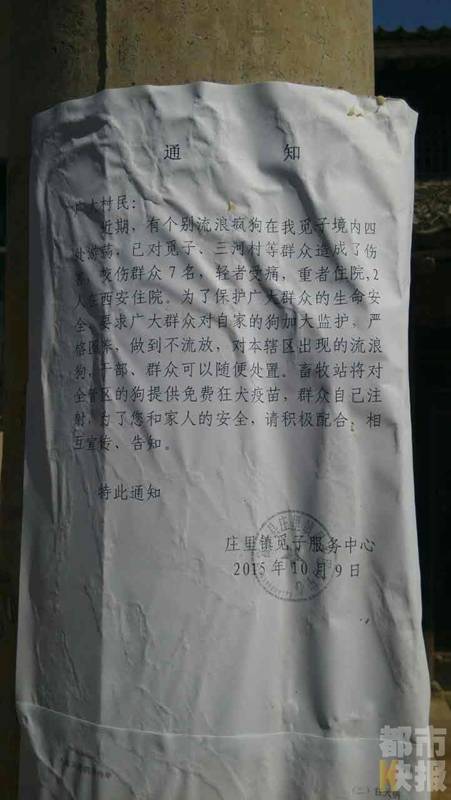 通 知
广大村民：
近期，有个别流浪疯狗在我觅子境内四
处游荡，已对觅子、三河村等群众造成了伤
害，咬伤群众7名，轻者受痛，重者住院，2
人在西安住院。为了保护广大群众的生命安
全，要求广大群众对自家的狗加大监护，严
格圈养，做到不流放，对本辖区出现的流浪
狗，干部、群众可以随便处置。畜牧站将对
全管区的狗提供免费狂犬疫苗，群众自己注
射，为了您和家人的安全，请积极配合，相
互宣传、告知。
特此通知
庄里镇觅子服务中心
2015年10月9日
庄里镇
都市
快报